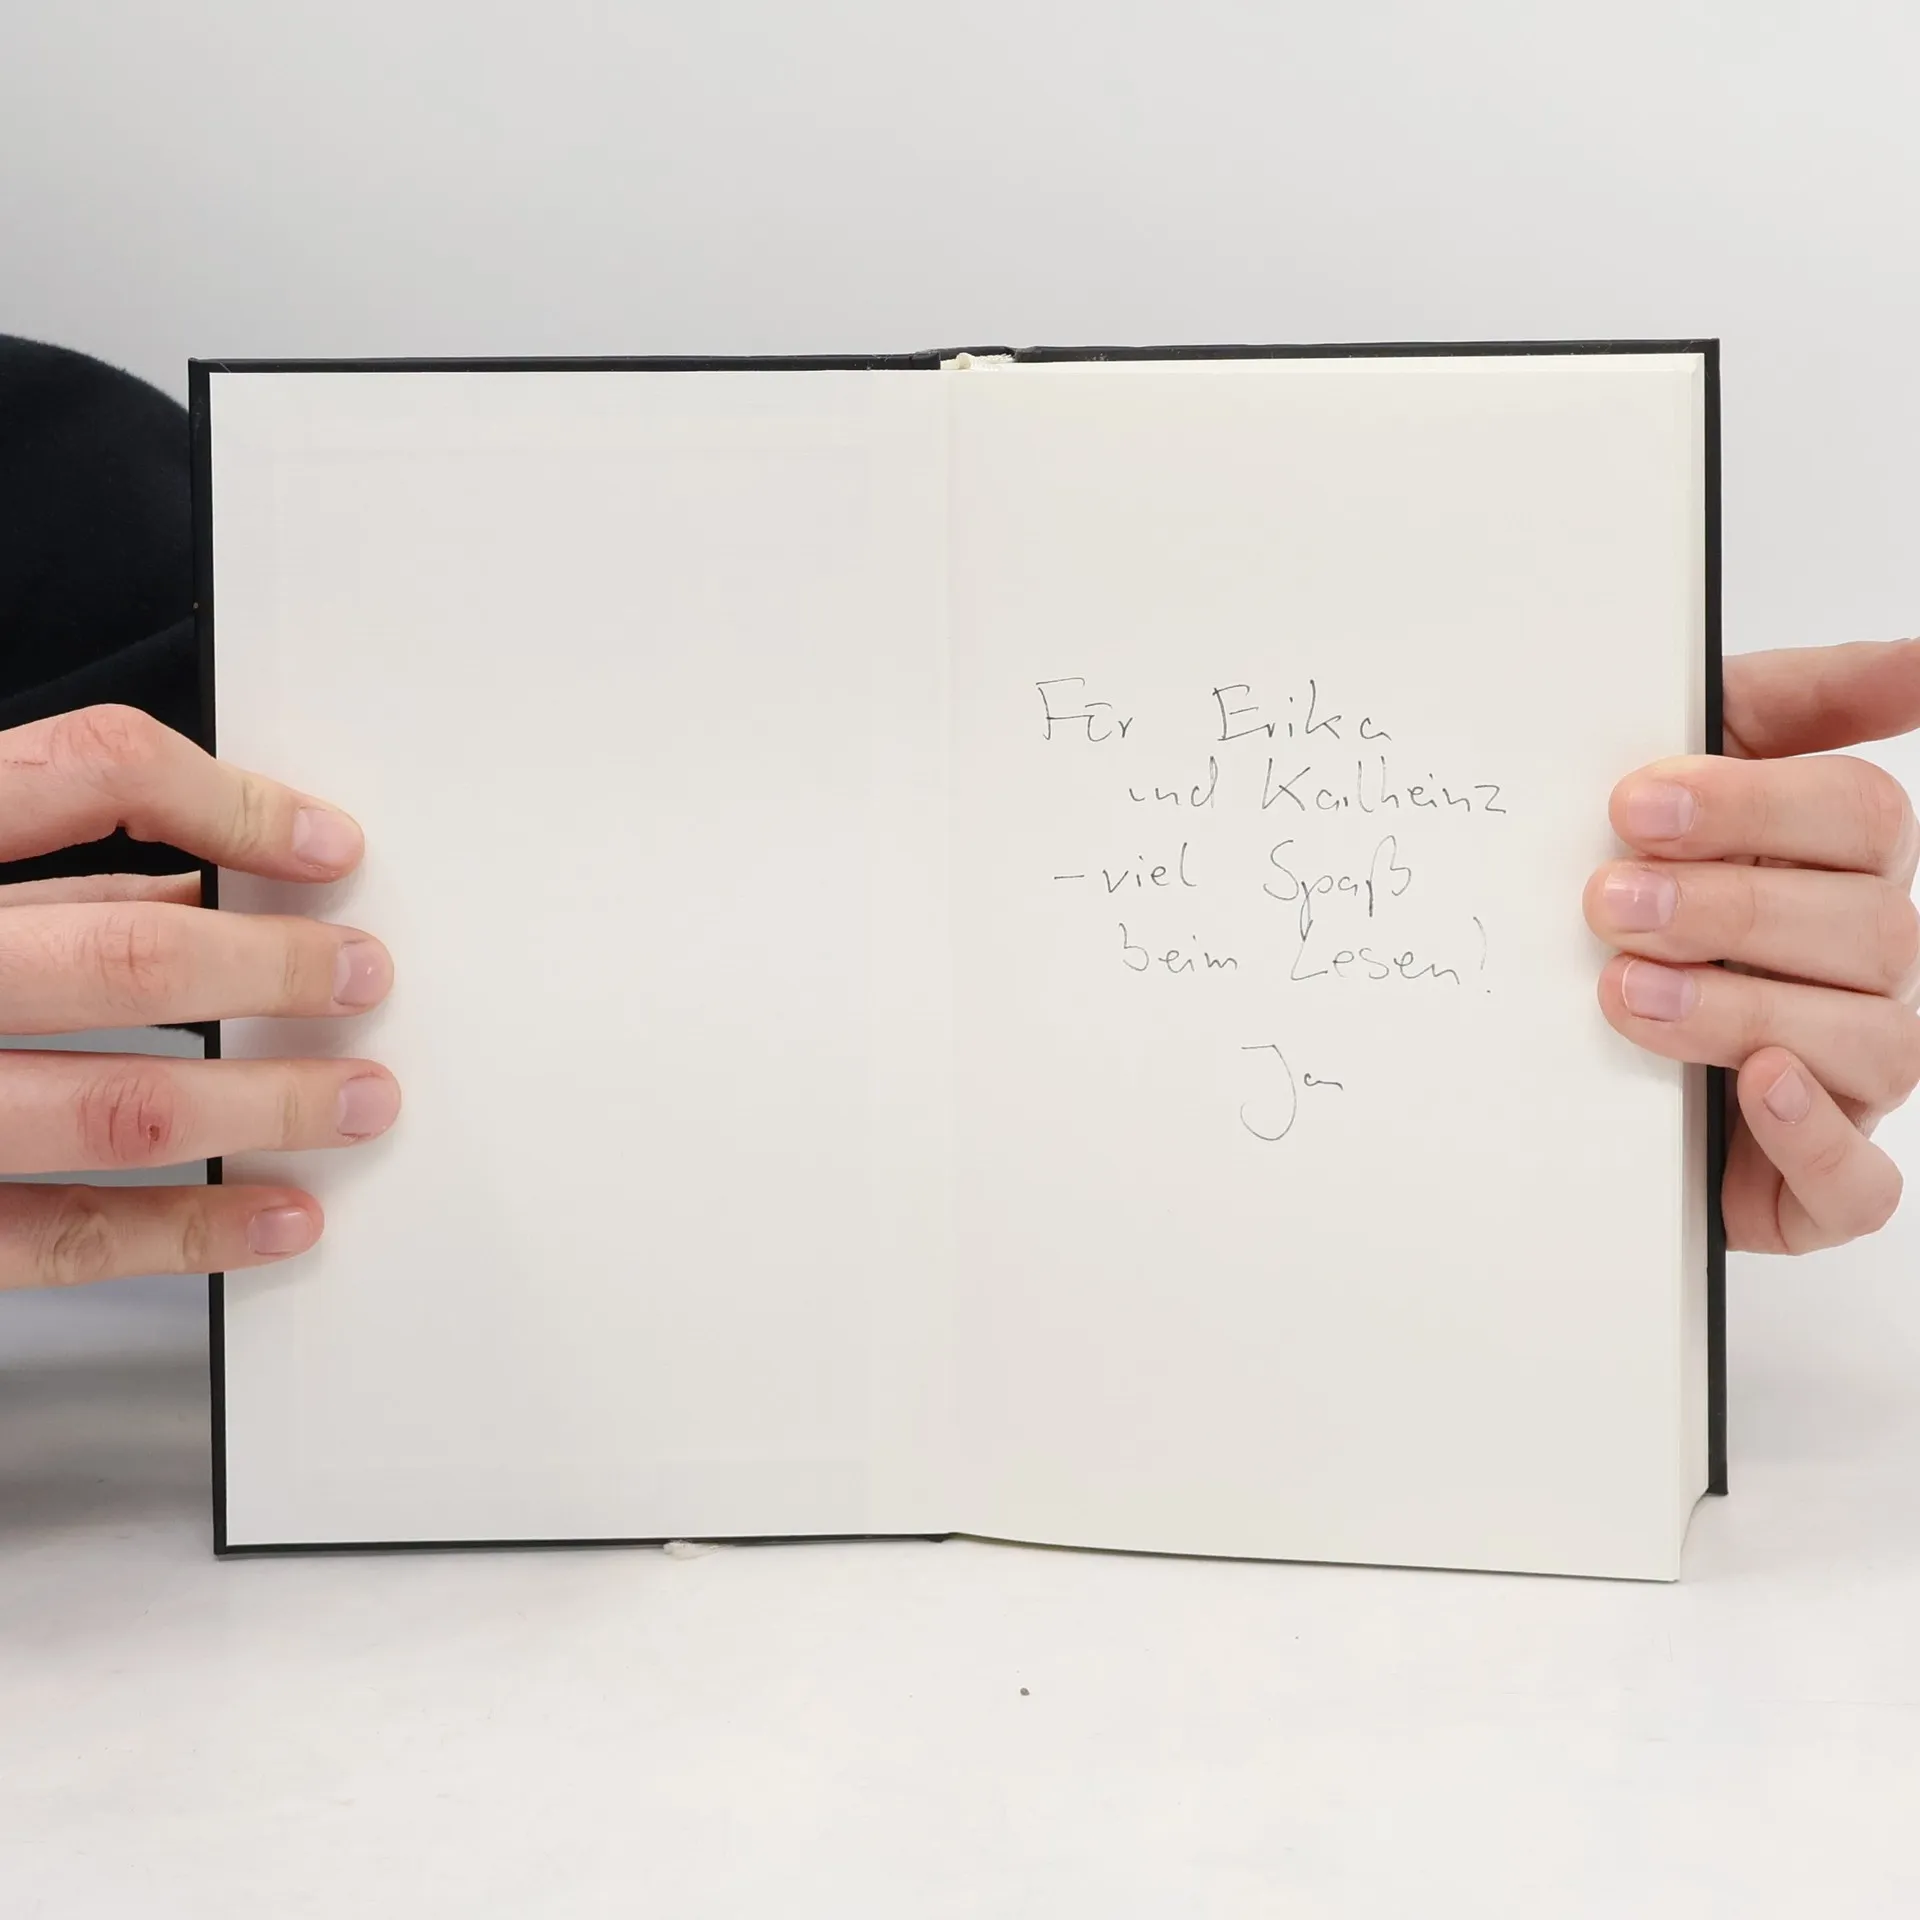 Für Erika
und Karlheinz
- viel Spaß
beim Lesen!
Jan